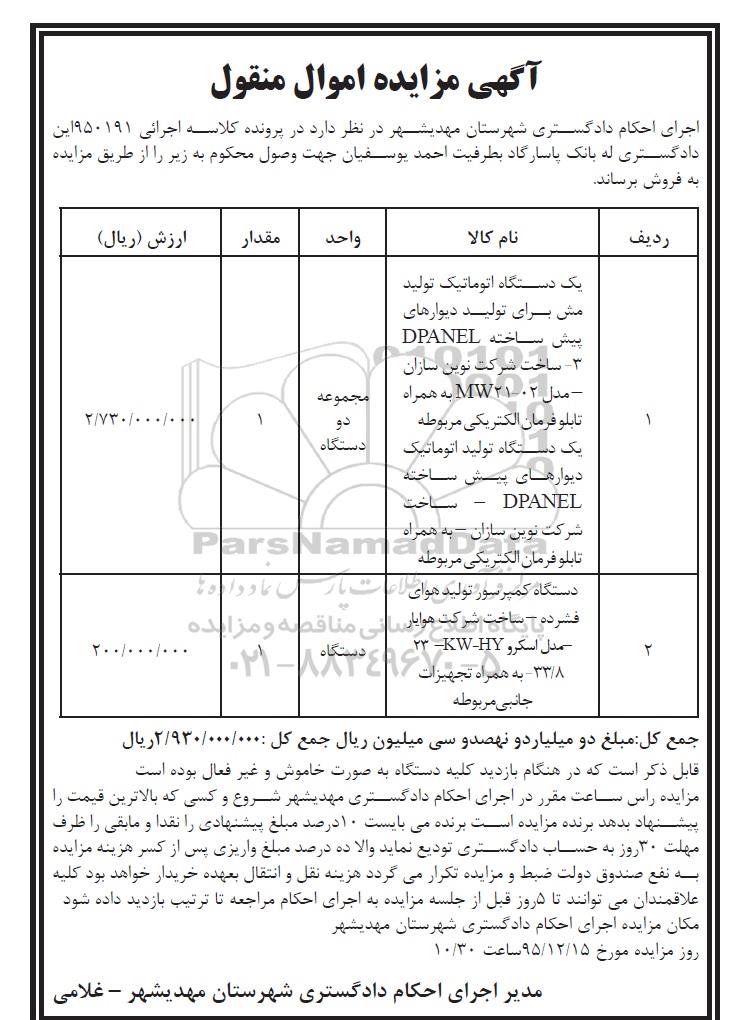 آگهی مزایده اموال منقول
اجرای احکام دادگستری شهرستان مهدیشهر در نظر دارد در پرونده کلاسه اجرائی ۹۵۰۱۹۱این
دادگستری له بانک پاسارگاد بطرفیت احمد یوسفیان جهت وصول محکوم به زیر را از طریق مزایده
به فروش برساند.
ردیف نام کالا واحد مقدار ارزش (ریال)
یک دستگاه اتوماتیک تولید
مش برای تولید دیوارهای
پیش ساخته DPANEL
۳- ساخت شرکت نوین سازان
–مدل MW۲۱-۰۲ به همراه
تابلو فرمان الکتریکی مربوطه
یک دستگاه تولید اتوماتیک
دیوارهای پیش ساخته
DPANEL – ساخت
شرکت نوین سازان – به همراه
تابلو فرمان الکتریکی مربوطه
۱
مجموعه
دو
دستگاه
۱
۲/۷۳۰/۰۰۰/۰۰۰
دستگاه کمپرسور تولید هوای
فشرده – ساخت شرکت هوایار
–مدل اسکرو KW-HY– ۲۳
۳۳/۸- به همراه تجهیزات
جانبی مربوطه
۲
دستگاه
۱
۲۰۰/۰۰۰/۰۰۰
جمع کل:مبلغ دو میلیاردو نهصدو سی میلیون ریال جمع کل :۲/۹۳۰/۰۰۰/۰۰۰ریال
قابل ذکر است که در هنگام بازدید کلیه دستگاه به صورت خاموش و غیر فعال بوده است
مزایده راس ساعت مقرر در اجرای احکام دادگستری مهدیشهر شروع و کسی که بالاترین قیمت را
پیشنهاد بدهد برنده مزایده است برنده می بایست ۱۰درصد مبلغ پیشنهادی را نقدا و مابقی را ظرف
مهلت ۳۰روز به حساب دادگستری تودیع نماید والا ده درصد مبلغ واریزی پس از کسر هزینه مزایده
به نفع صندوق دولت ضبط و مزایده تکرار می گردد هزینه نقل و انتقال بعهده خریدار خواهد بود کلیه
علاقمندان می توانند تا ۵روز قبل از جلسه مزایده به اجرای احکام مراجعه تا ترتیب بازدید داده شود
مکان مزایده اجرای احکام دادگستری شهرستان مهدیشهر
روز مزایده مورخ ۹۵/۱۲/۱۵ساعت ۱۰/۳۰
مدیر اجرای احکام دادگستری شهرستان مهدیشهر – غلامی
ParsNamadData
مرکز فرآوری اطلاعات پارس نماد داده ها
پایگاه اطلاع رسانی مناقصه و مزایده
۰۲۱-۸۸۳۴۹۶۷۰-۵